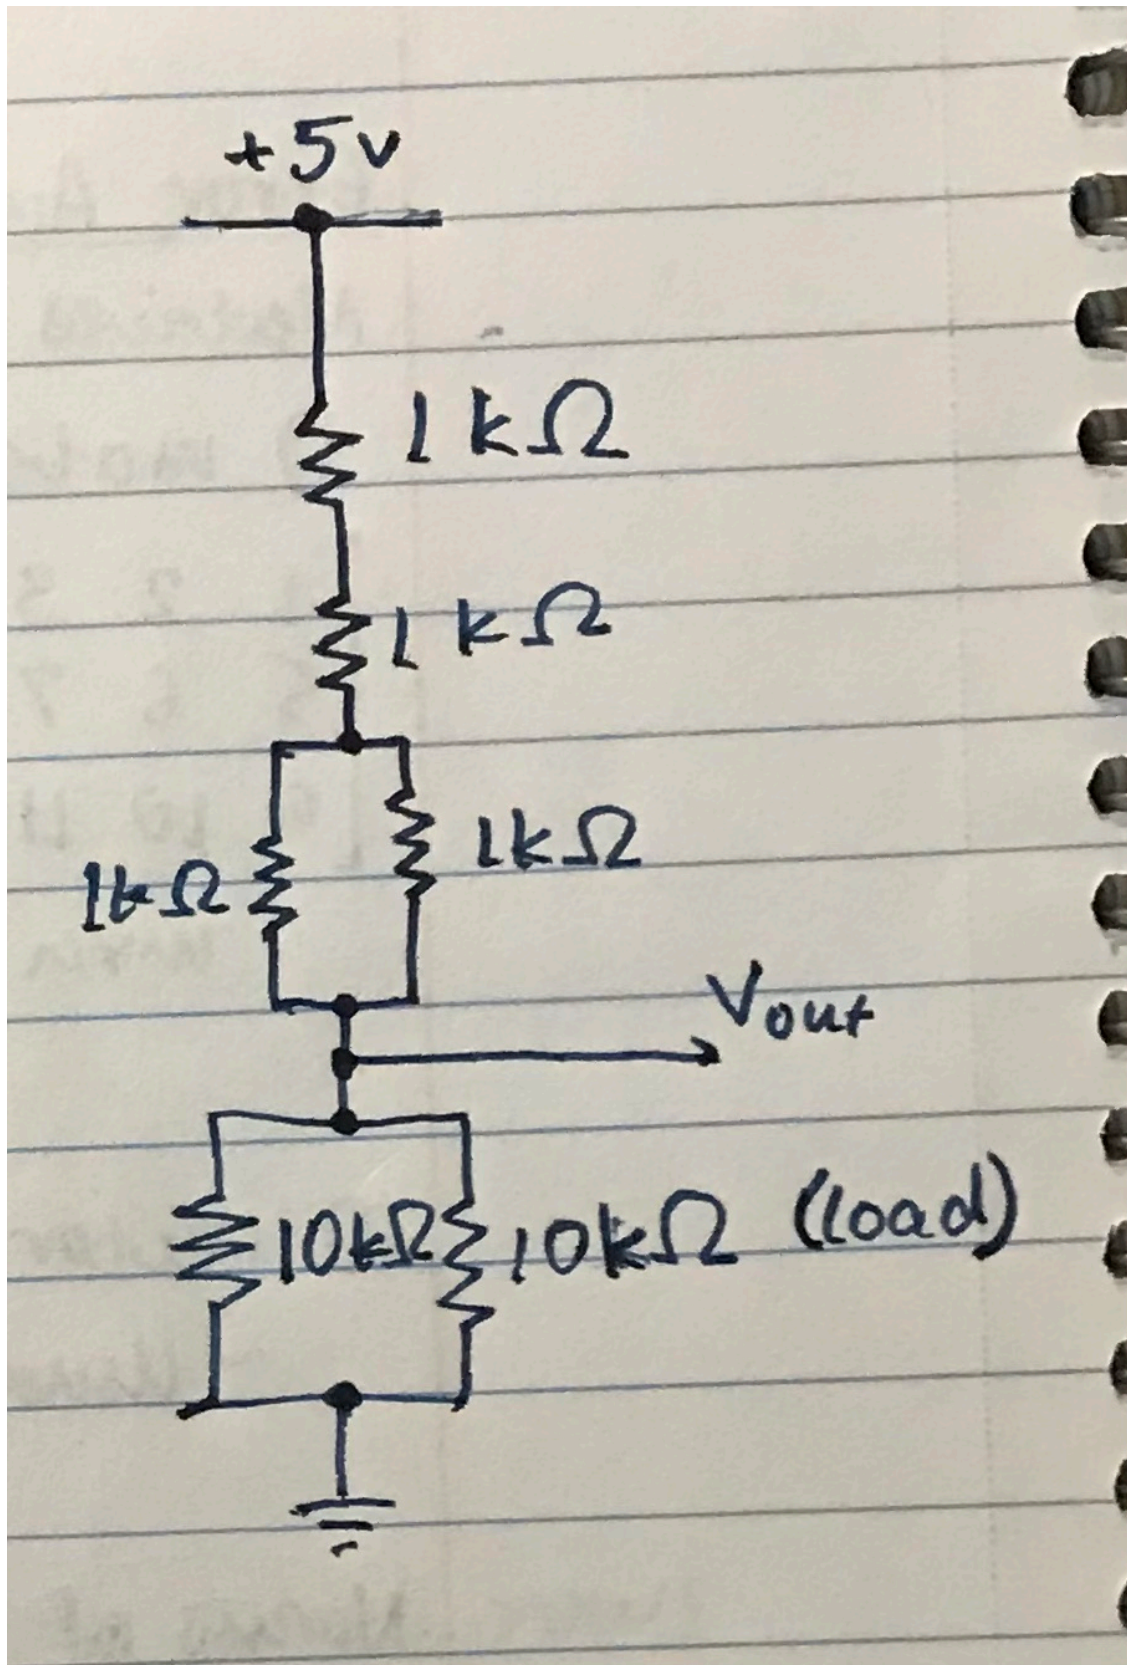 +5v
1kΩ
1kΩ
1kΩ 1kΩ
Vout
10kΩ 10kΩ (load)